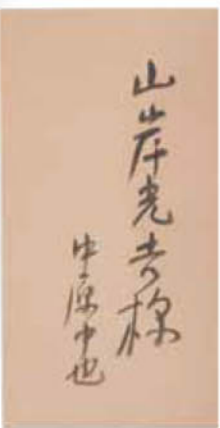 山岸光吉様
中原中也